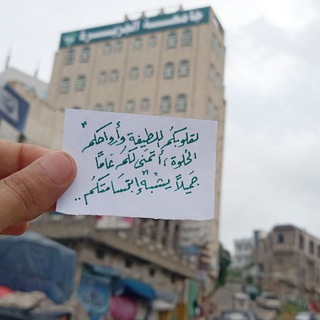 جامعة الجزيرة
لقلوبكم اللطيفة وأرواحكم
الحلوة، أتمنى لكم عامًا
جميلاً يشبه إبتسامتكم..